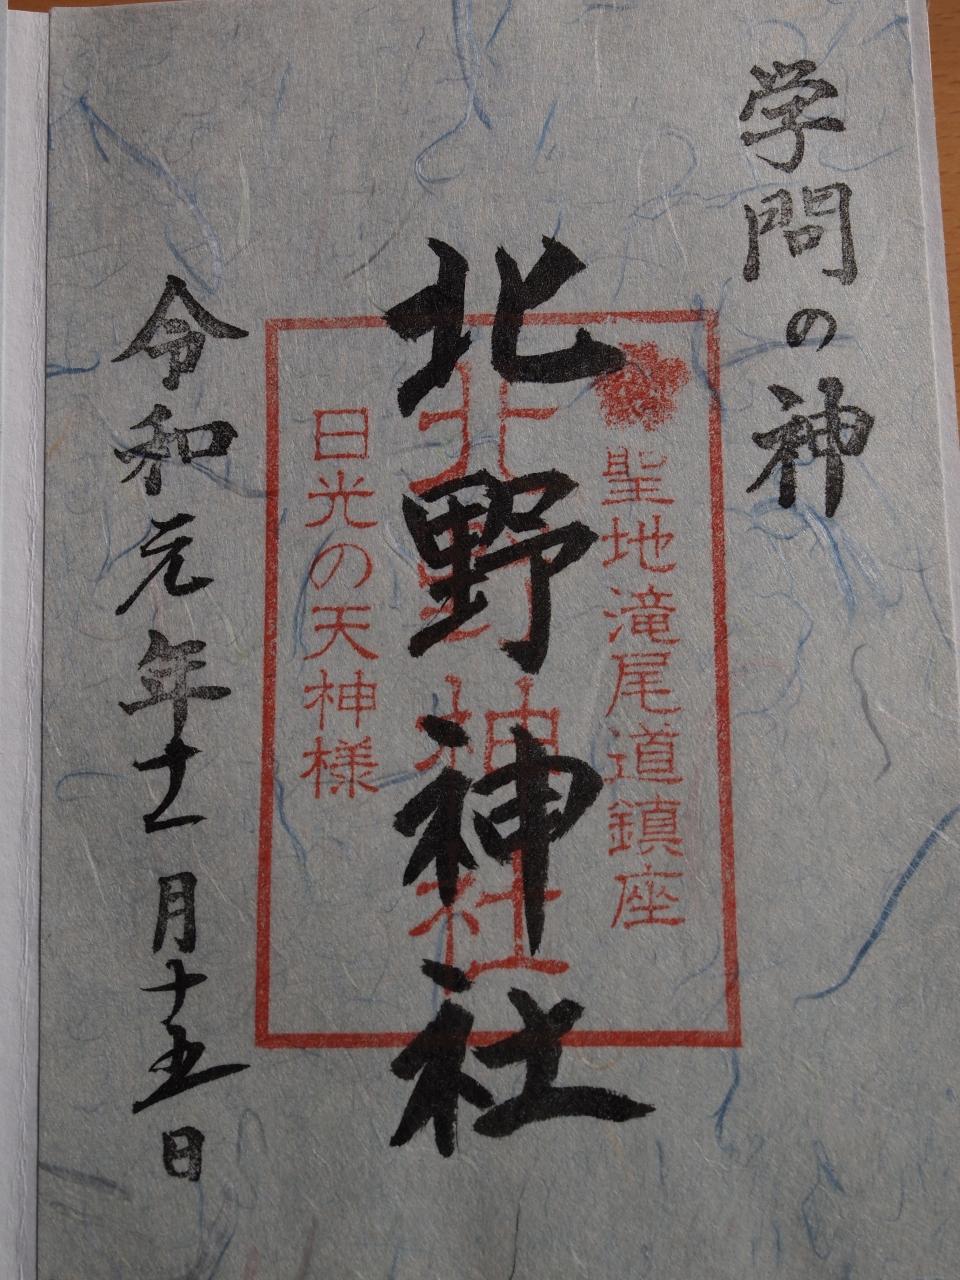 学問の神
聖地滝尾道鎮座
北野神社
北野神社
日光の天神様
令和元年十一月十五日